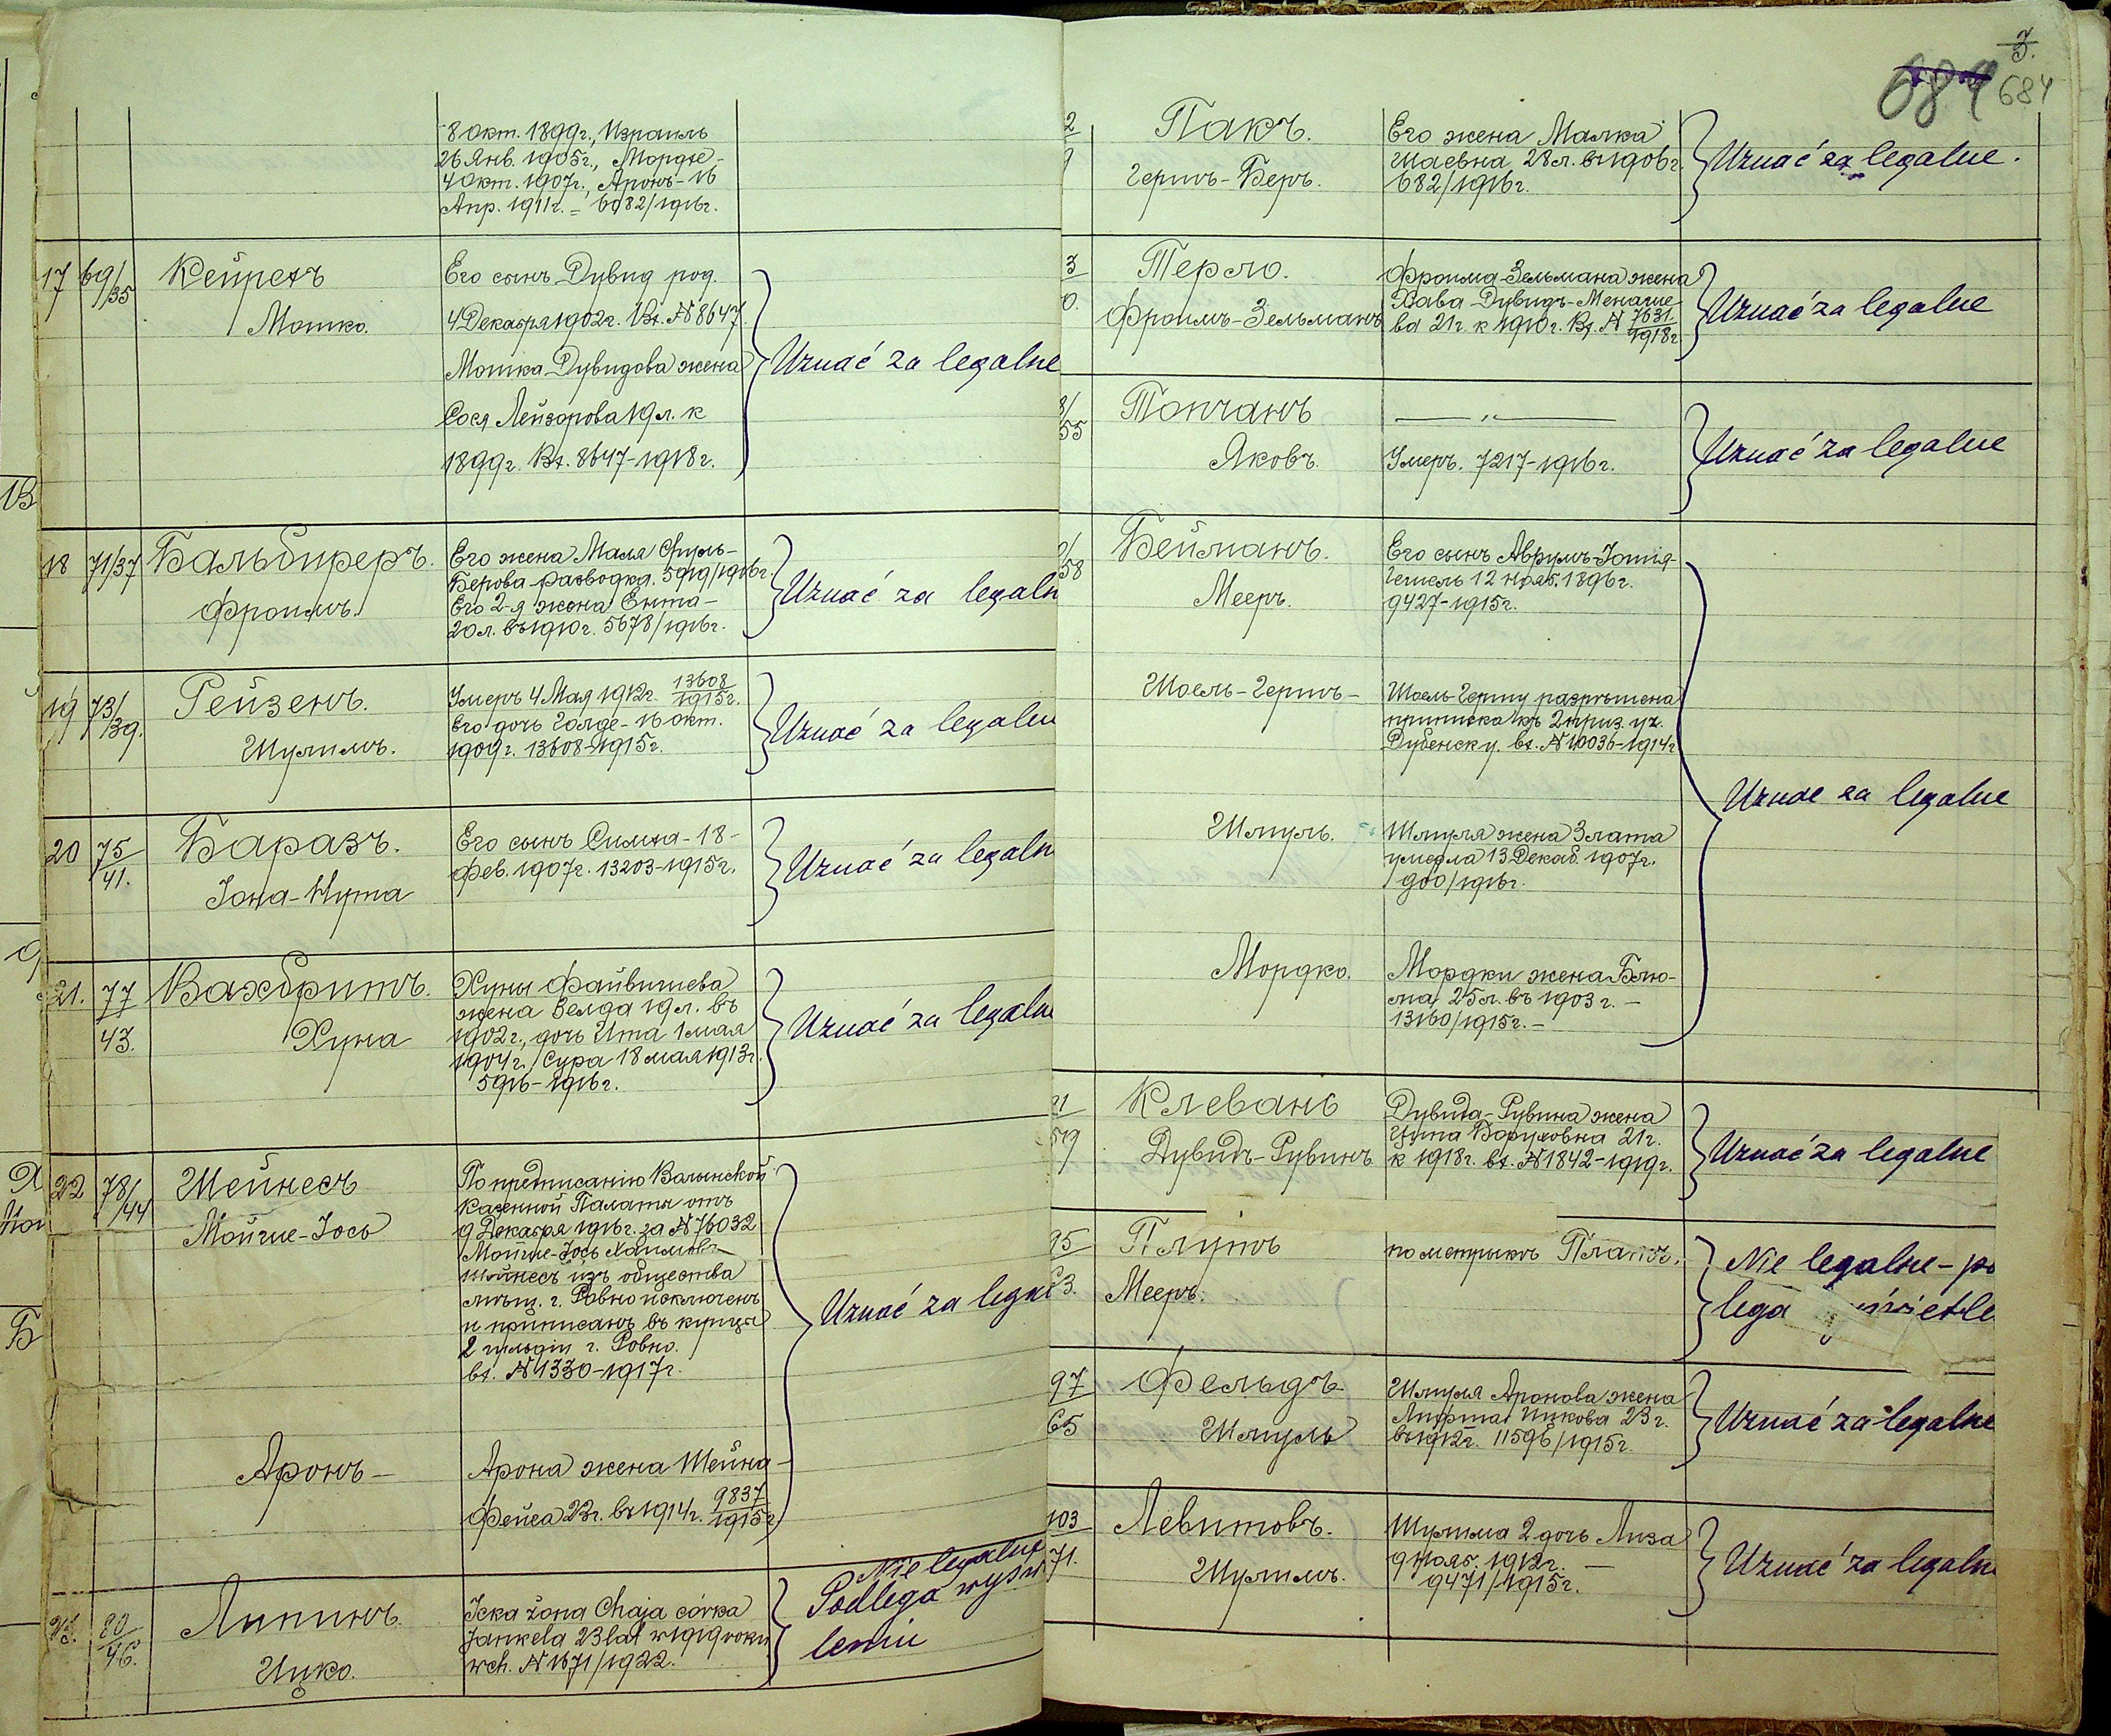 8 Окт. 1899г., Израиль
26 Янв. 1905г., Мордхе-
4 Окт. 1907г., Аронъ-16
Апр. 1911г. = 6982/1916г.
17 69/35 Кейретъ
Мотко.
Его сынъ Дувид род.
4 Декабря 1902г. Вх. № 8647
Мотка Дувидова жена
Сося Лейзорова 19л. к
1899г. Вх. 8647-1918г.
Uznać za legalne
18 71/37 Бальбиреръ.
Фроимъ.
Его жена Маля Сруль-
Берова разводка. 5919/1916г.
Его 2-я жена Ента-
20л. въ 1910г. 5678/1916г.
Uznać za legaln
19 73/39. Рейзенъ.
Шулимъ.
Умеръ 4 Мая 1912г. 13608/1915г.
Его дочь Голде-16 окт.
1909г. 13608-1915г.
Uznać za legaln
20 75/41. Баразъ.
Іона-Нута
Его сынъ Симха-18-
фев. 1907г. 13203-1915г.
Uznać za legaln
21. 77/43. Вахбритъ.
Хуна
Хуны Файвишева
жена Велда 19л. въ
1902г., дочь Ита 1 мая
1904г., Сура 18 мая 1913г.
5916-1916г.
Uznać za legaln
22 78/44 Шейнесъ
Мойше-Іось
По предписанію Волынской
Казенной Палаты отъ
9 Декабря 1916г. за № 76032
Мойше-Іось Хаимовъ
Шейнесъ изъ общества
мѣщ. г. Ровно исключенъ
и приписанъ въ купцы
2 гильдіи г. Ровно.
вх. № 1330-1917г.
Uznać za legal
Аронъ-
Арона жена Шейна-
Фейга 23г. въ 1914г. 9837/1915г.
23. 80/46. Липинъ.
Ицко.
Icka żona Chaja córka
Jankela 23 lat w 1919 roku
wch. № 1671/1922.
Nie legalne
Podlega wyświ
leniu
7
3.
684
684
2 Пакъ.
Гершъ-Беръ.
Его жена Малка
Шаевна 28л. въ 1906г.
682/1916г.
Uznać za legalne.
3/0. Терло.
Фроимъ-Зельманъ
Фроима-Зельмана жена
Хава Дувидъ-Менаше-
ва 21г. к 1910г. Вх. № 7631/1918г.
Uznać za legalne
8/55 Топчанъ
Яковъ.
— " —
Умеръ. 7217-1916г.
Uznać za legalne
/58 Бейманъ.
Мееръ.
Его сынъ Аврумъ-Іошія-
Гешель 12 Нояб. 1896г.
9427-1915г.
Шоель-Гершъ-
Шоель-Гершу разрѣшена
приписка къ 2 приз. уч.
Дубенск. у. вх. № 10036-1914г
Шмуль.
Шмуля жена Злата
умерла 13 Декаб. 1907г.
900/1916г.
Uznać za legalne
Мордко.
Мордки жена Блю-
ма, 25л. въ 1903г. -
13160/1915г. -
91/59 Клевань
Дувидъ-Рувинъ
Дувида-Рувина жена
Цупа Боруховна 21г.
к 1918г. вх. № 1842-1919г.
Uznać za legalne
95/63. Плутъ
Мееръ.
по метрикѣ Платъ.
Nie legalne - po
lega wyświetle
97/65 Фельдъ
Шмуль
Шмуля Аронова жена
Лифша Ицкова 23г.
въ 1912г. 11596/1915г.
Uznać za legalne
103/71. Левитовъ.
Шулимъ.
Шулима 2 дочь Лиза
9 Нояб. 1912г. -
9471/1915г.
Uznać za legalne